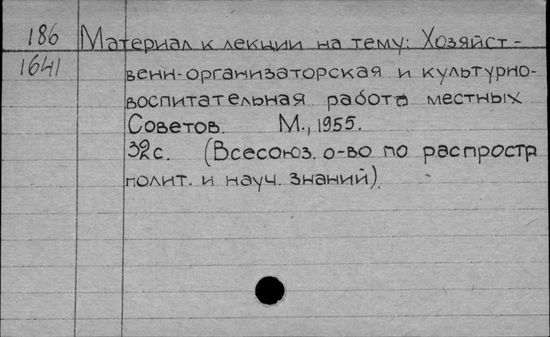 186 Материал к лекции на тему: Хозяйст-
1641 венн-организаторская и культурно-
воспитательная работа местных
Советов. М., 1955.
32с. (Всесоюз. о-во по распростр
полит. и науч. знаний).